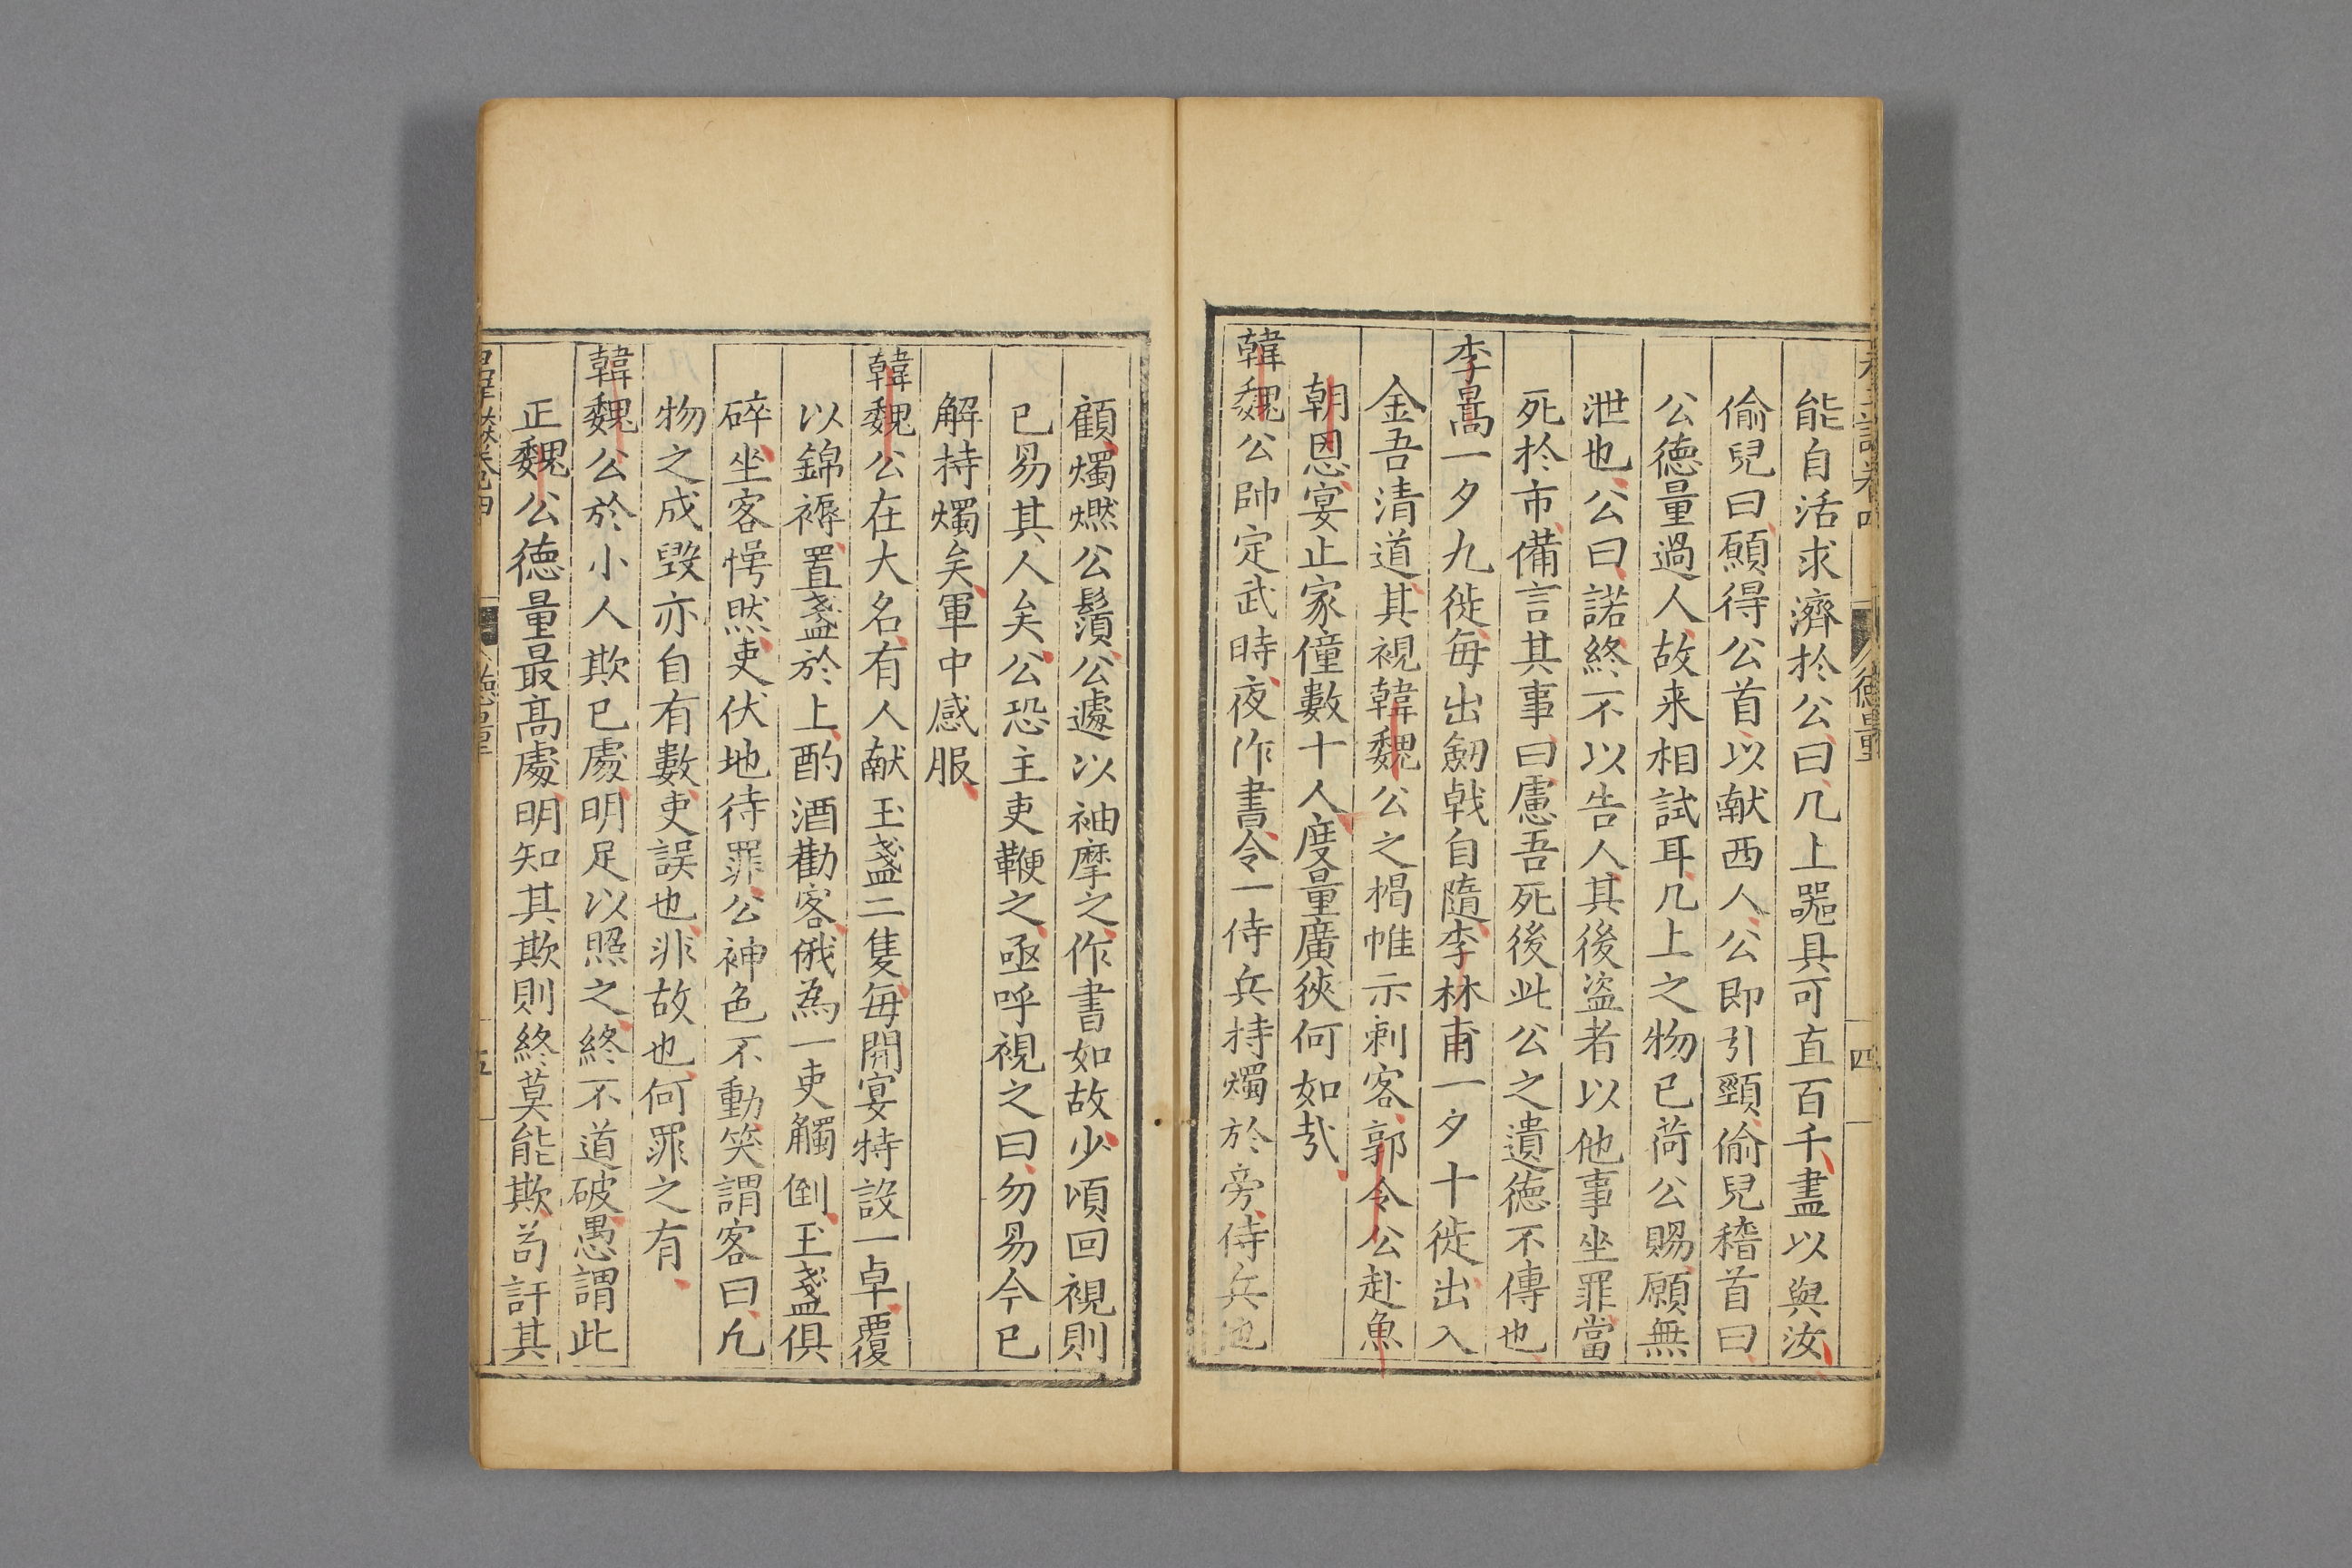 能自活求濟於公曰几上噐具可直百千盡以與汝
偷兒曰願得公首以献西人公即引頸偷兒稽首曰
公德量過人故来相試耳几上之物已荷公賜願無
泄也公曰諾終不以告人其後盗者以他事坐罪當
死於市備言其事曰慮吾死後此公之遺德不傳也
李暠一夕九徙每出劒戟自隨李林甫一夕十徙出入
金吾清道其視韓魏公之揭帷示刺客郭令公赴魚
朝恩宴止家僮數十人度量廣狹何如㢤
韓魏公帥定武時夜作書令一侍兵持燭於旁侍兵他
顧燭燃公鬚公遽以袖摩之作書如故少頃回視則
已易其人矣公恐主吏鞭之亟呼視之曰勿易今已
解持燭矣軍中感服
韓魏公在大名有人献玉盞二隻每開宴特設一卓覆
以錦褥置盞於上酌酒勸客俄為一吏觸倒玉盞俱
碎坐客愕然吏伏地待罪公神色不動笑謂客曰凢
物之成毀亦自有數吏誤也非故也何罪之有
韓魏公於小人欺已處明足以照之終不道破愚謂此
正魏公德量最高處明知其欺則終莫能欺苟訐其
德量
四
五